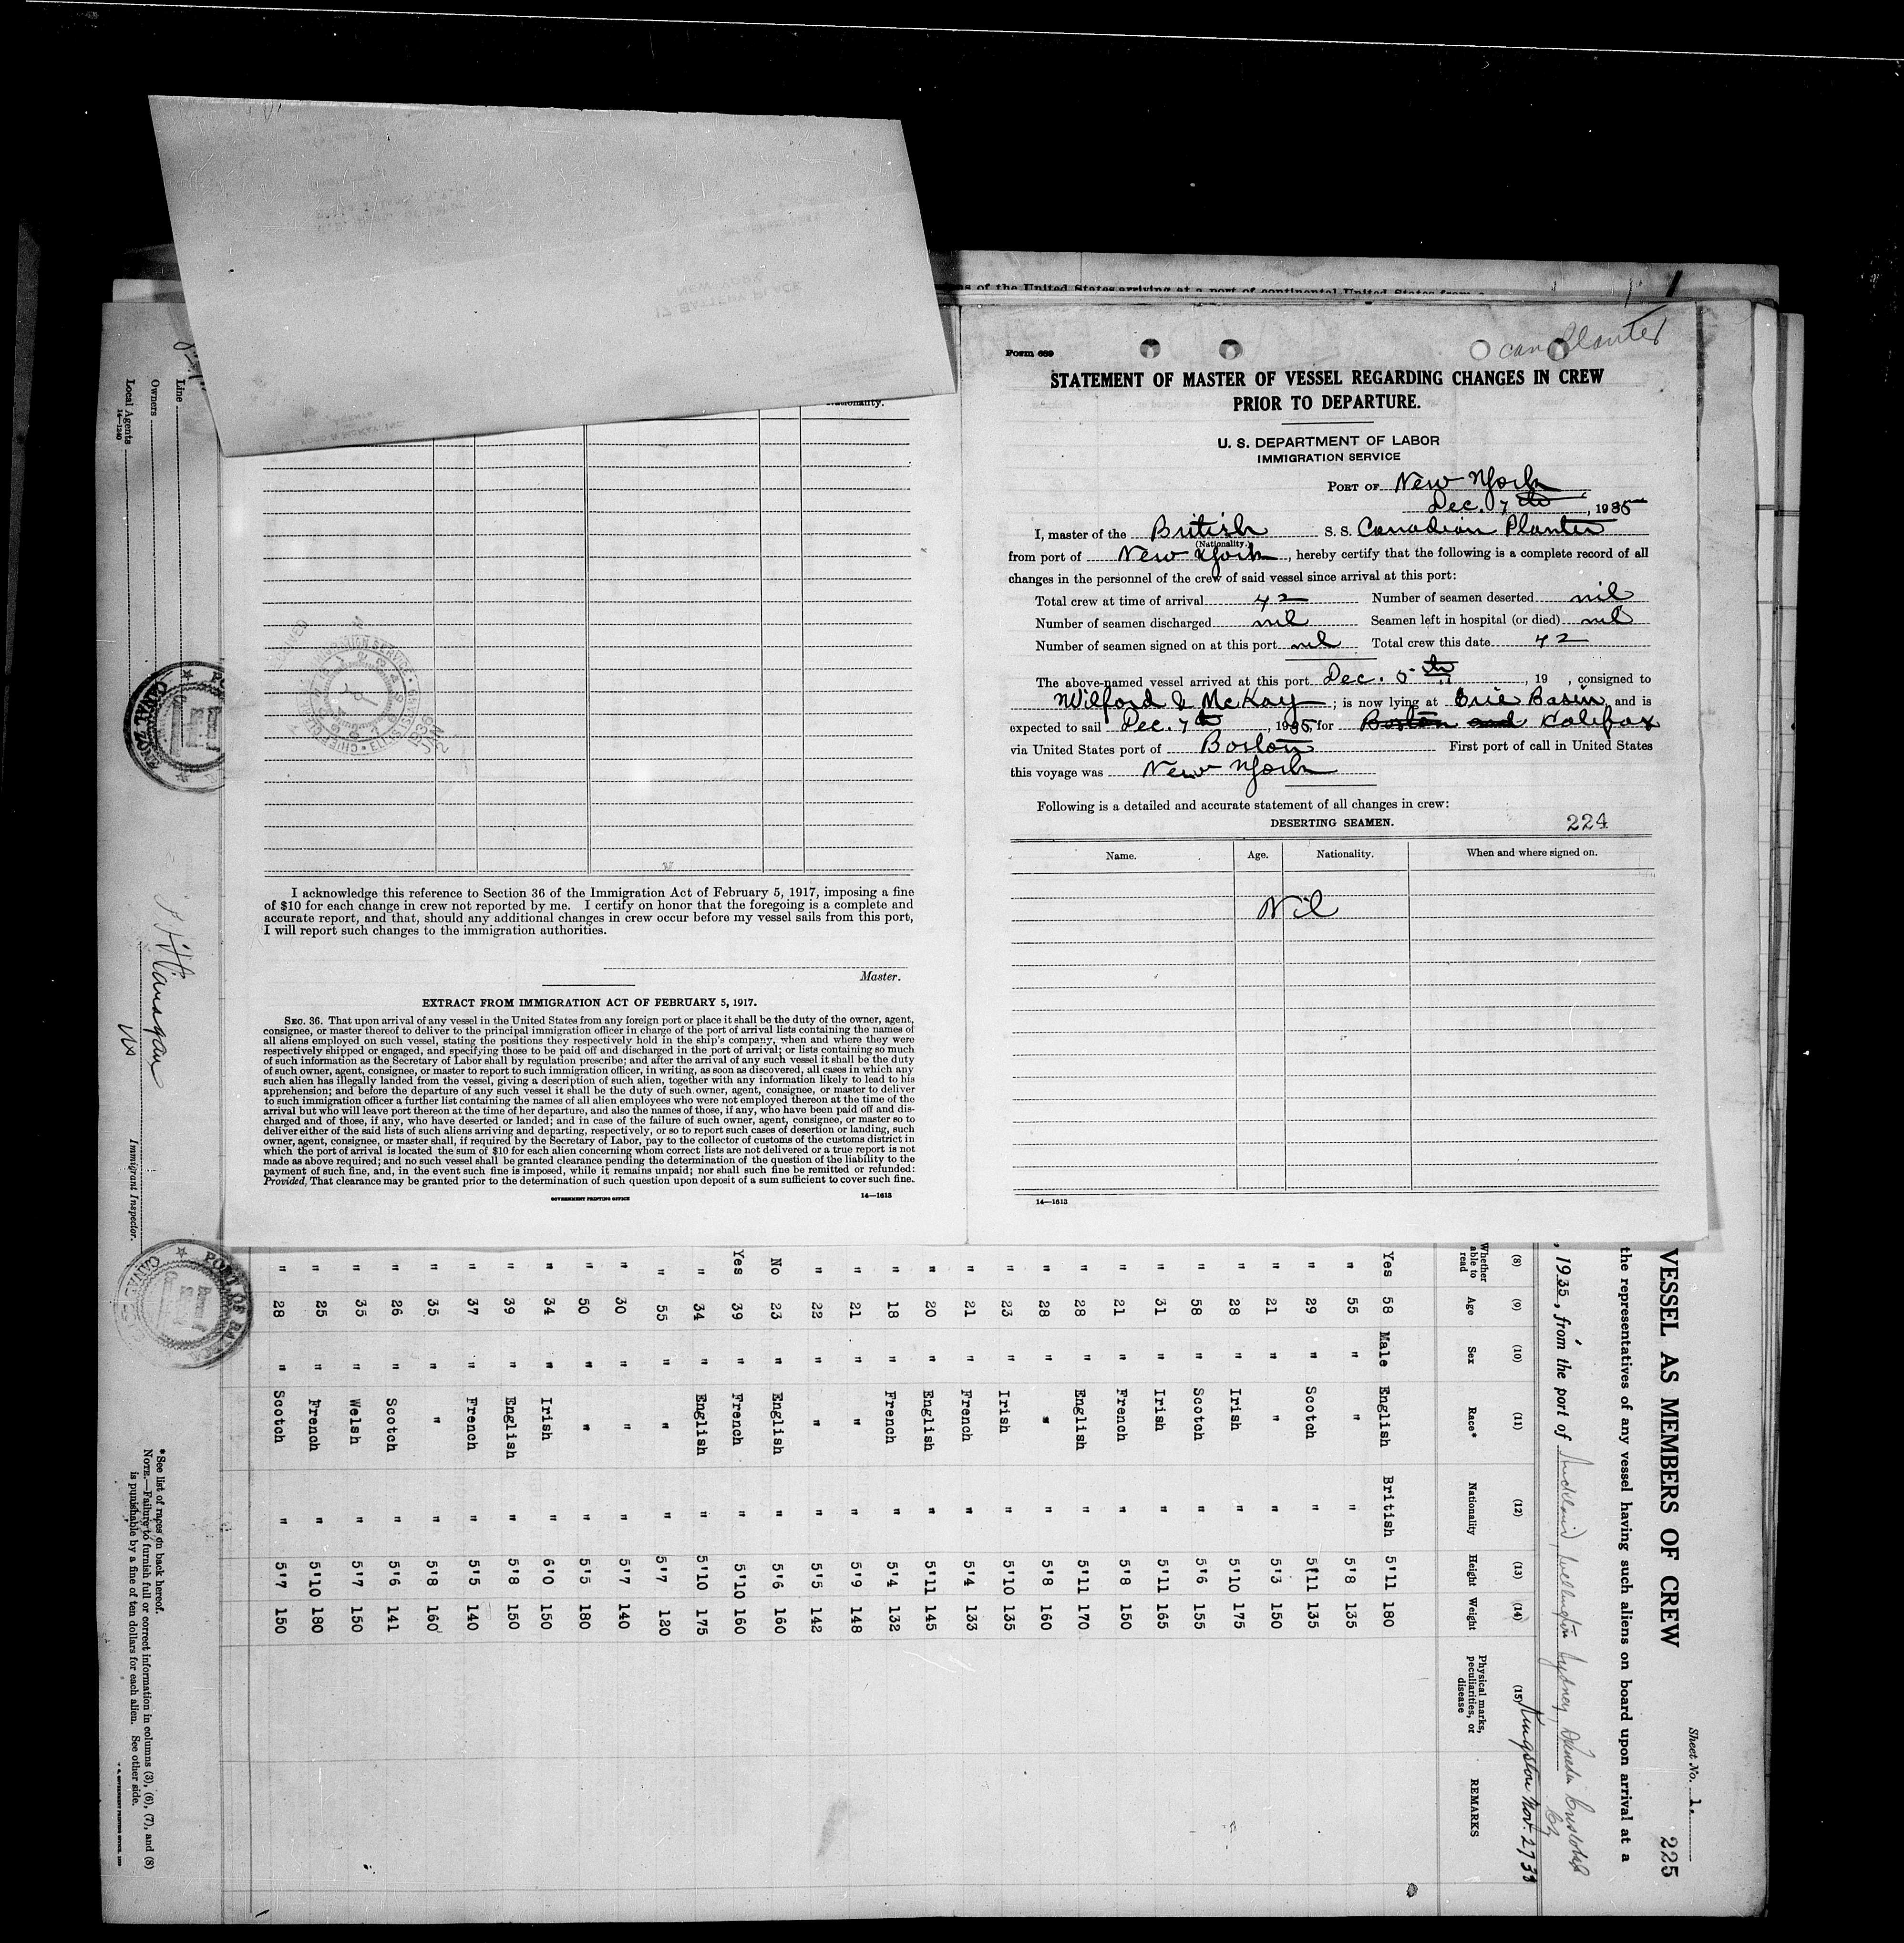 of the United States arriving at a port of continental United States from a
Can Planter
Form 689
STATEMENT OF MASTER OF VESSEL REGARDING CHANGES IN CREW
PRIOR TO DEPARTURE.
U. S. DEPARTMENT OF LABOR
IMMIGRATION SERVICE
PORT OF New York
Dec. 7th, 1935
I, master of the British S. S. Canadian Planter
(Nationality.)
from port of New York, hereby certify that the following is a complete record of all
changes in the personnel of the crew of said vessel since arrival at this port:
Total crew at time of arrival 42 Number of seamen deserted nil
Number of seamen discharged nil Seamen left in hospital (or died) nil
Number of seamen signed on at this port nil Total crew this date 42
The above-named vessel arrived at this port Dec. 5th, 19 , consigned to
Wilford & McKay; is now lying at Erie Basin, and is
expected to sail Dec. 7th, 1935, for Boston and Halifax
via United States port of Boston First port of call in United States
this voyage was New York
Following is a detailed and accurate statement of all changes in crew:
DESERTING SEAMEN.
224
Name. Age. Nationality. When and where signed on.
Nil
14—1613
Nationality.
I acknowledge this reference to Section 36 of the Immigration Act of February 5, 1917, imposing a fine
of $10 for each change in crew not reported by me. I certify on honor that the foregoing is a complete and
accurate report, and that, should any additional changes in crew occur before my vessel sails from this port,
I will report such changes to the immigration authorities.
Master.
EXTRACT FROM IMMIGRATION ACT OF FEBRUARY 5, 1917.
SEC. 36. That upon arrival of any vessel in the United States from any foreign port or place it shall be the duty of the owner, agent,
consignee, or master thereof to deliver to the principal immigration officer in charge of the port of arrival lists containing the names of
all aliens employed on such vessel, stating the positions they respectively hold in the ship's company, when and where they were
respectively shipped or engaged, and specifying those to be paid off and discharged in the port of arrival; or lists containing so much
of such information as the Secretary of Labor shall by regulation prescribe; and after the arrival of any such vessel it shall be the duty
of such owner, agent, consignee, or master to report to such immigration officer, in writing, as soon as discovered, all cases in which any
such alien has illegally landed from the vessel, giving a description of such alien, together with any information likely to lead to his
apprehension; and before the departure of any such vessel it shall be the duty of such owner, agent, consignee, or master to deliver
to such immigration officer a further list containing the names of all alien employees who were not employed thereon at the time of the
arrival but who will leave port thereon at the time of her departure, and also the names of those, if any, who have been paid off and dis-
charged and of those, if any, who have deserted or landed; and in case of the failure of such owner, agent, consignee, or master so to
deliver either of the said lists of such aliens arriving and departing, respectively, or so to report such cases of desertion or landing, such
owner, agent, consignee, or master shall, if required by the Secretary of Labor, pay to the collector of customs of the customs district in
which the port of arrival is located the sum of $10 for each alien concerning whom correct lists are not delivered or a true report is not
made as above required; and no such vessel shall be granted clearance pending the determination of the question of the liability to the
payment of such fine, and, in the event such fine is imposed, while it remains unpaid; nor shall such fine be remitted or refunded:
Provided, That clearance may be granted prior to the determination of such question upon deposit of a sum sufficient to cover such fine.
GOVERNMENT PRINTING OFFICE 14—1613
Sheet No. 1.
225
VESSEL AS MEMBERS OF CREW
the representatives of any vessel having such aliens on board upon arrival at a
, 1935, from the port of Auckland, Wellington Sydney Dunedin Cristobal
Kingston Nov. 27
(8) (9) (10) (11) (12) (13) (14) (15)
Whether able to read Age Sex Race* Nationality Height Weight Physical marks, peculiarities, or disease REMARKS
Yes 58 Male English British 5'11 180
" 55 " " " 5'8 135
" 29 " Scotch " 5'11 135
" 21 " " " 5'3 150
" 28 " Irish " 5'10 175
" 58 " Scotch " 5'6 155
" 31 " Irish " 5'11 165
" 21 " French " 5'8 150
" 28 " English " 5'11 170
" 28 " " " 5'8 160
" 23 " Irish " 5'10 135
" 21 " French " 5'4 133
" 20 " English " 5'11 145
" 18 " French " 5'4 132
" 21 " " " 5'9 148
" 22 " " " 5'5 142
No 23 " English " 5'6 160
Yes 39 " French " 5'10 160
" 34 " English " 5'10 175
" 55 " " " 5'7 120
" 30 " " " 5'7 140
" 50 " " " 5'5 180
" 34 " Irish " 6'0 150
" 39 " English " 5'8 150
" 37 " French " 5'5 140
" 35 " " " 5'8 160
" 26 " Scotch " 5'6 141
" 35 " Welsh " 5'7 150
" 25 " French " 5'10 180
" 28 " Scotch " 5'7 150
Line
Owners
Local Agents
14—1240
Immigrant Inspector.
*See list of races on back hereof.
NOTE.—Failure to furnish full or correct information in columns (3), (6), (7), and (8)
is punishable by a fine of ten dollars for each alien. See other side.
PORT OF
CANAL ZONE